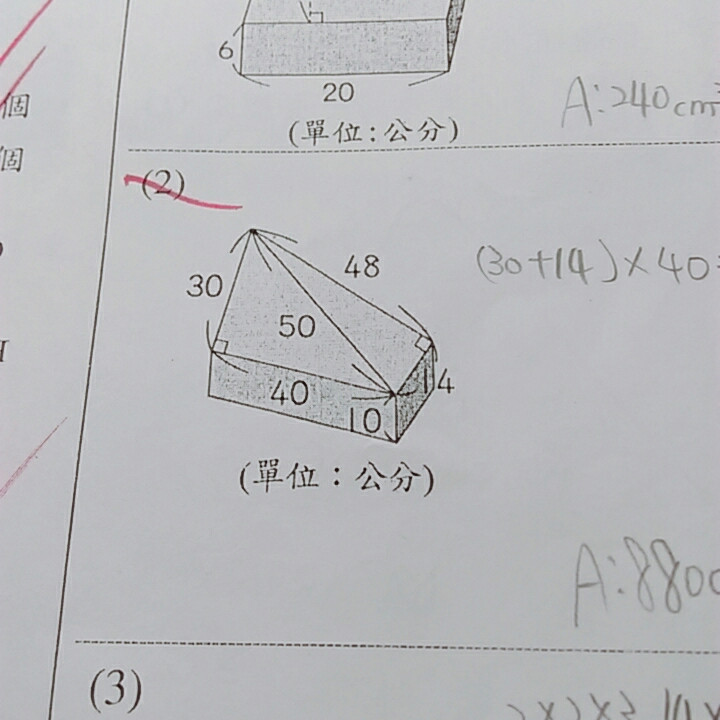 6
20
(單位:公分)
A:240cm
個
個
(2)
30
48
50
40
14
10
(30+14)×40
(單位：公分)
A:880
(3)